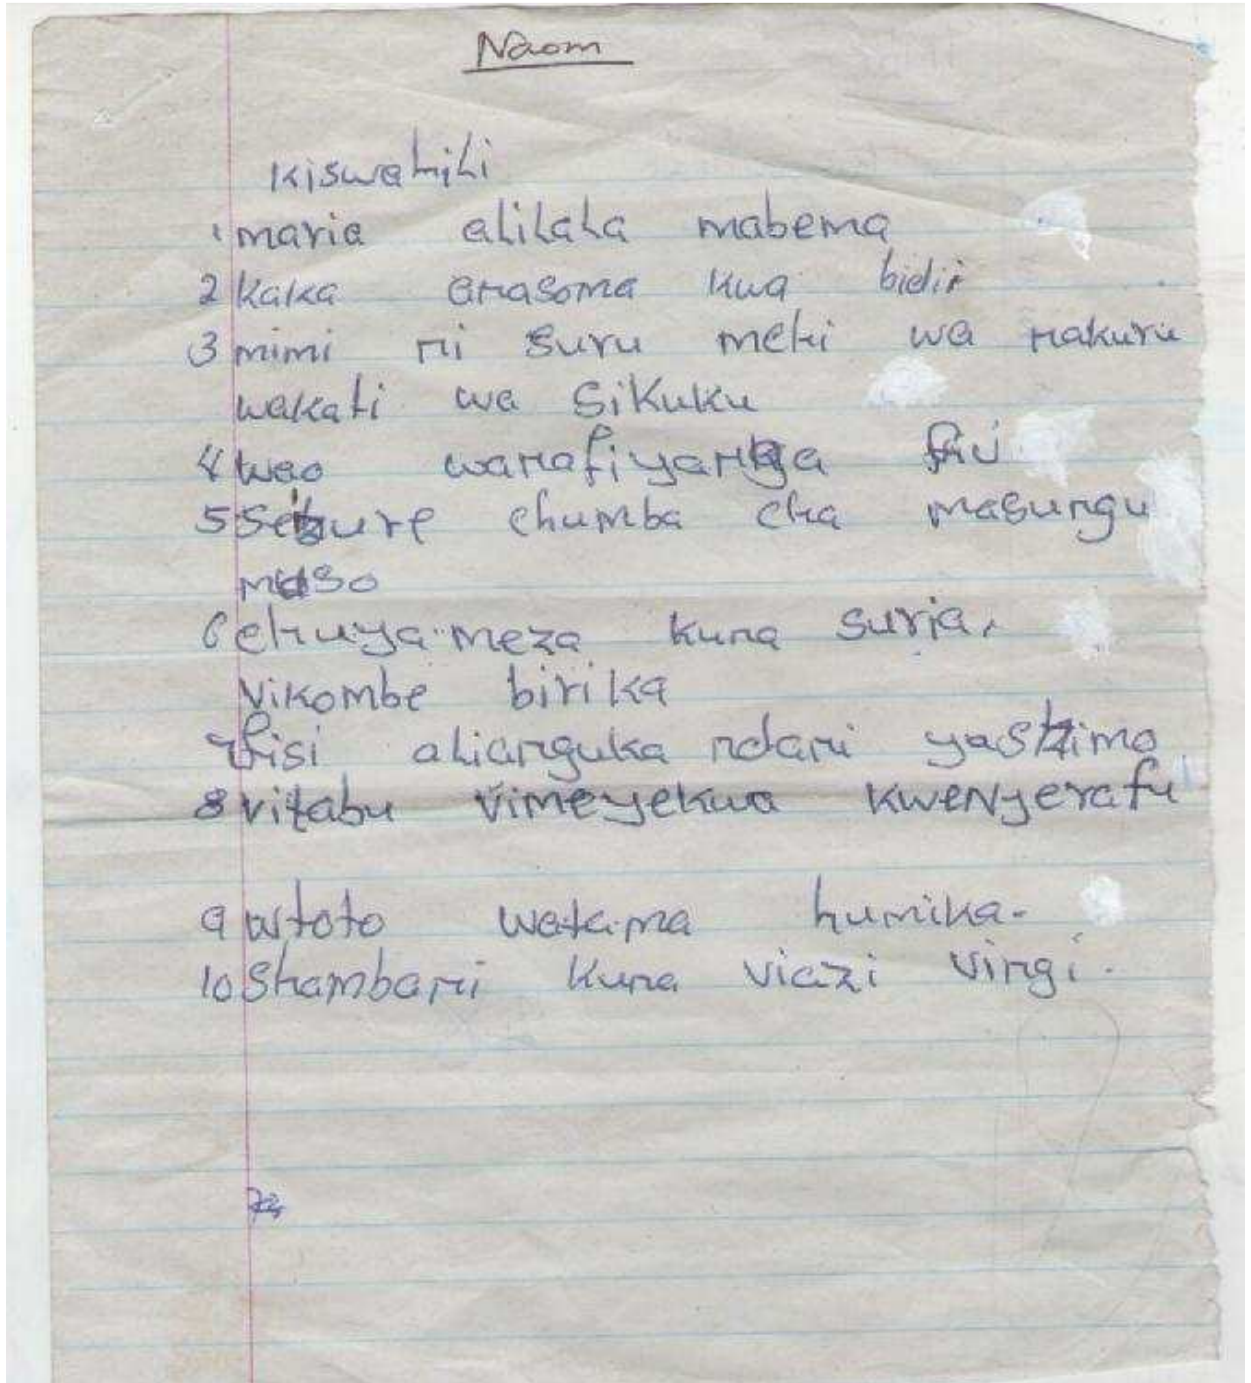 Naom
kiswahili
1 maria alilala mabema
2 kaka anasoma kwa bidii
3 mimi ni suru mehi wa nakuru
wakati wa sikuku
4 wao
5 chumba cha masungu
6 chuya meza kuna suria,
vikombe birika
7 fisi alianguka ndani yashimo
8 vitabu vimeyekwa kwenyerafu
9 wtoto watama humika.
10 Shambani kuna viazi vingi.